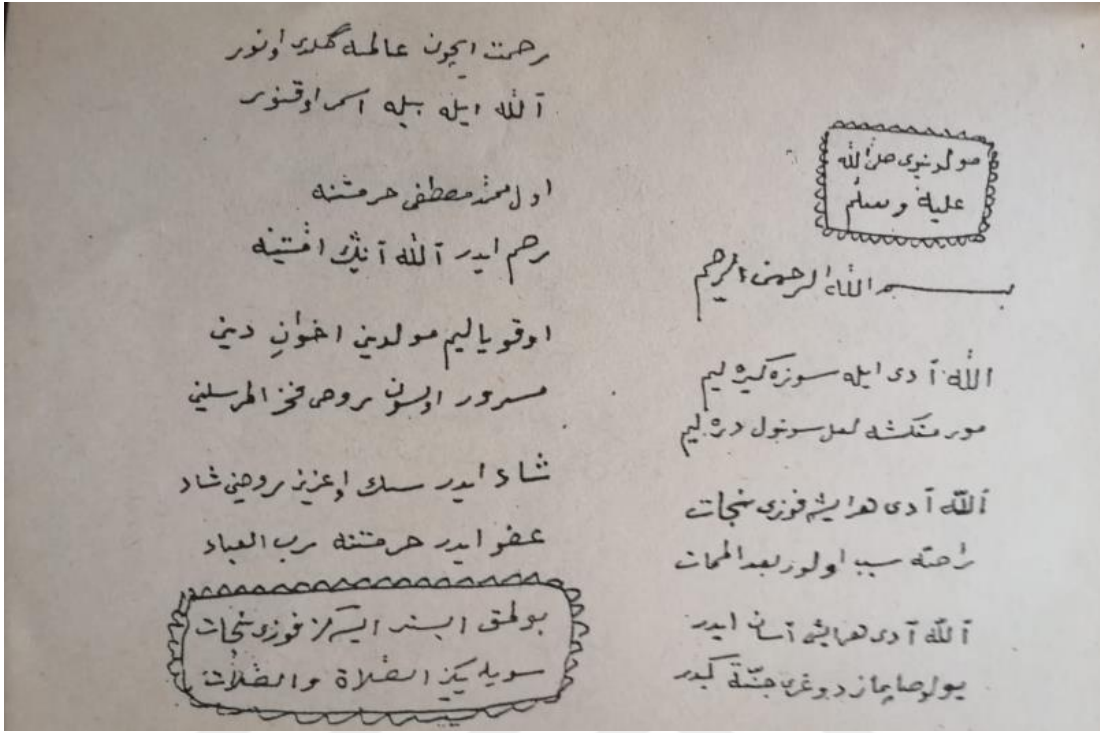 مولد نبوی صلی الله
عليه وسلم
بسم الله الرحمن الرحيم
الله آدی ايله سوزه کيره ليم
الله آدی هر ايشه فوزی نجات
راحته سبب اولور بعد الممات
الله آدی هر ايشی آسان ايدر
يولدن صاپماز دوغری جنّتة کيدر
رحمت ايچون عالمه گلدی اونور
آلله ايله بيله اسمی اوقنور
اول محمد مصطفی حرمتنه
رحم ايدر آلله آنڭ امّتينه
اوقوياليم مولدينی اخوانِ دين
مسرور اولسون روحی فخر المرسلين
شاد ايدر سك او عزيز روحينی شاد
عفو ايدر حرمتنه رب العباد
بولمق ايسترسكز فوزی نجات
سويليكز الصّلاة والصّلات